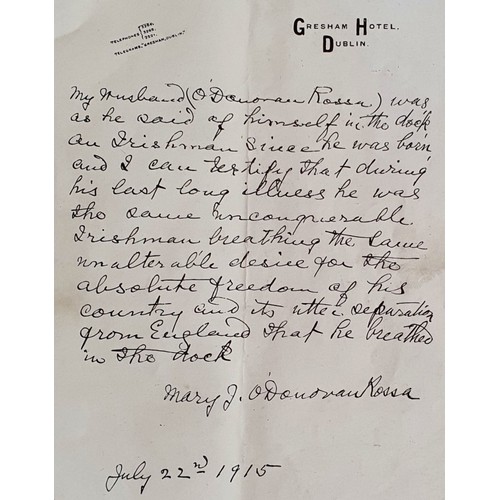 TELEPHONES
TELEGRAMS, "GRESHAM, DUBLIN."
GRESHAM HOTEL,
DUBLIN.
My husband (O'Donovan Rossa) was
as he said of himself in the dock
an Irishman since he was born
and I can testify that during
his last long illness he was
the same unconquerable
Irishman breathing the same
unalterable desire for the
absolute freedom of his
country and its utter separation
from England that he breathed
in the dock
Mary J. O'Donovan Rossa
July 22nd 1915